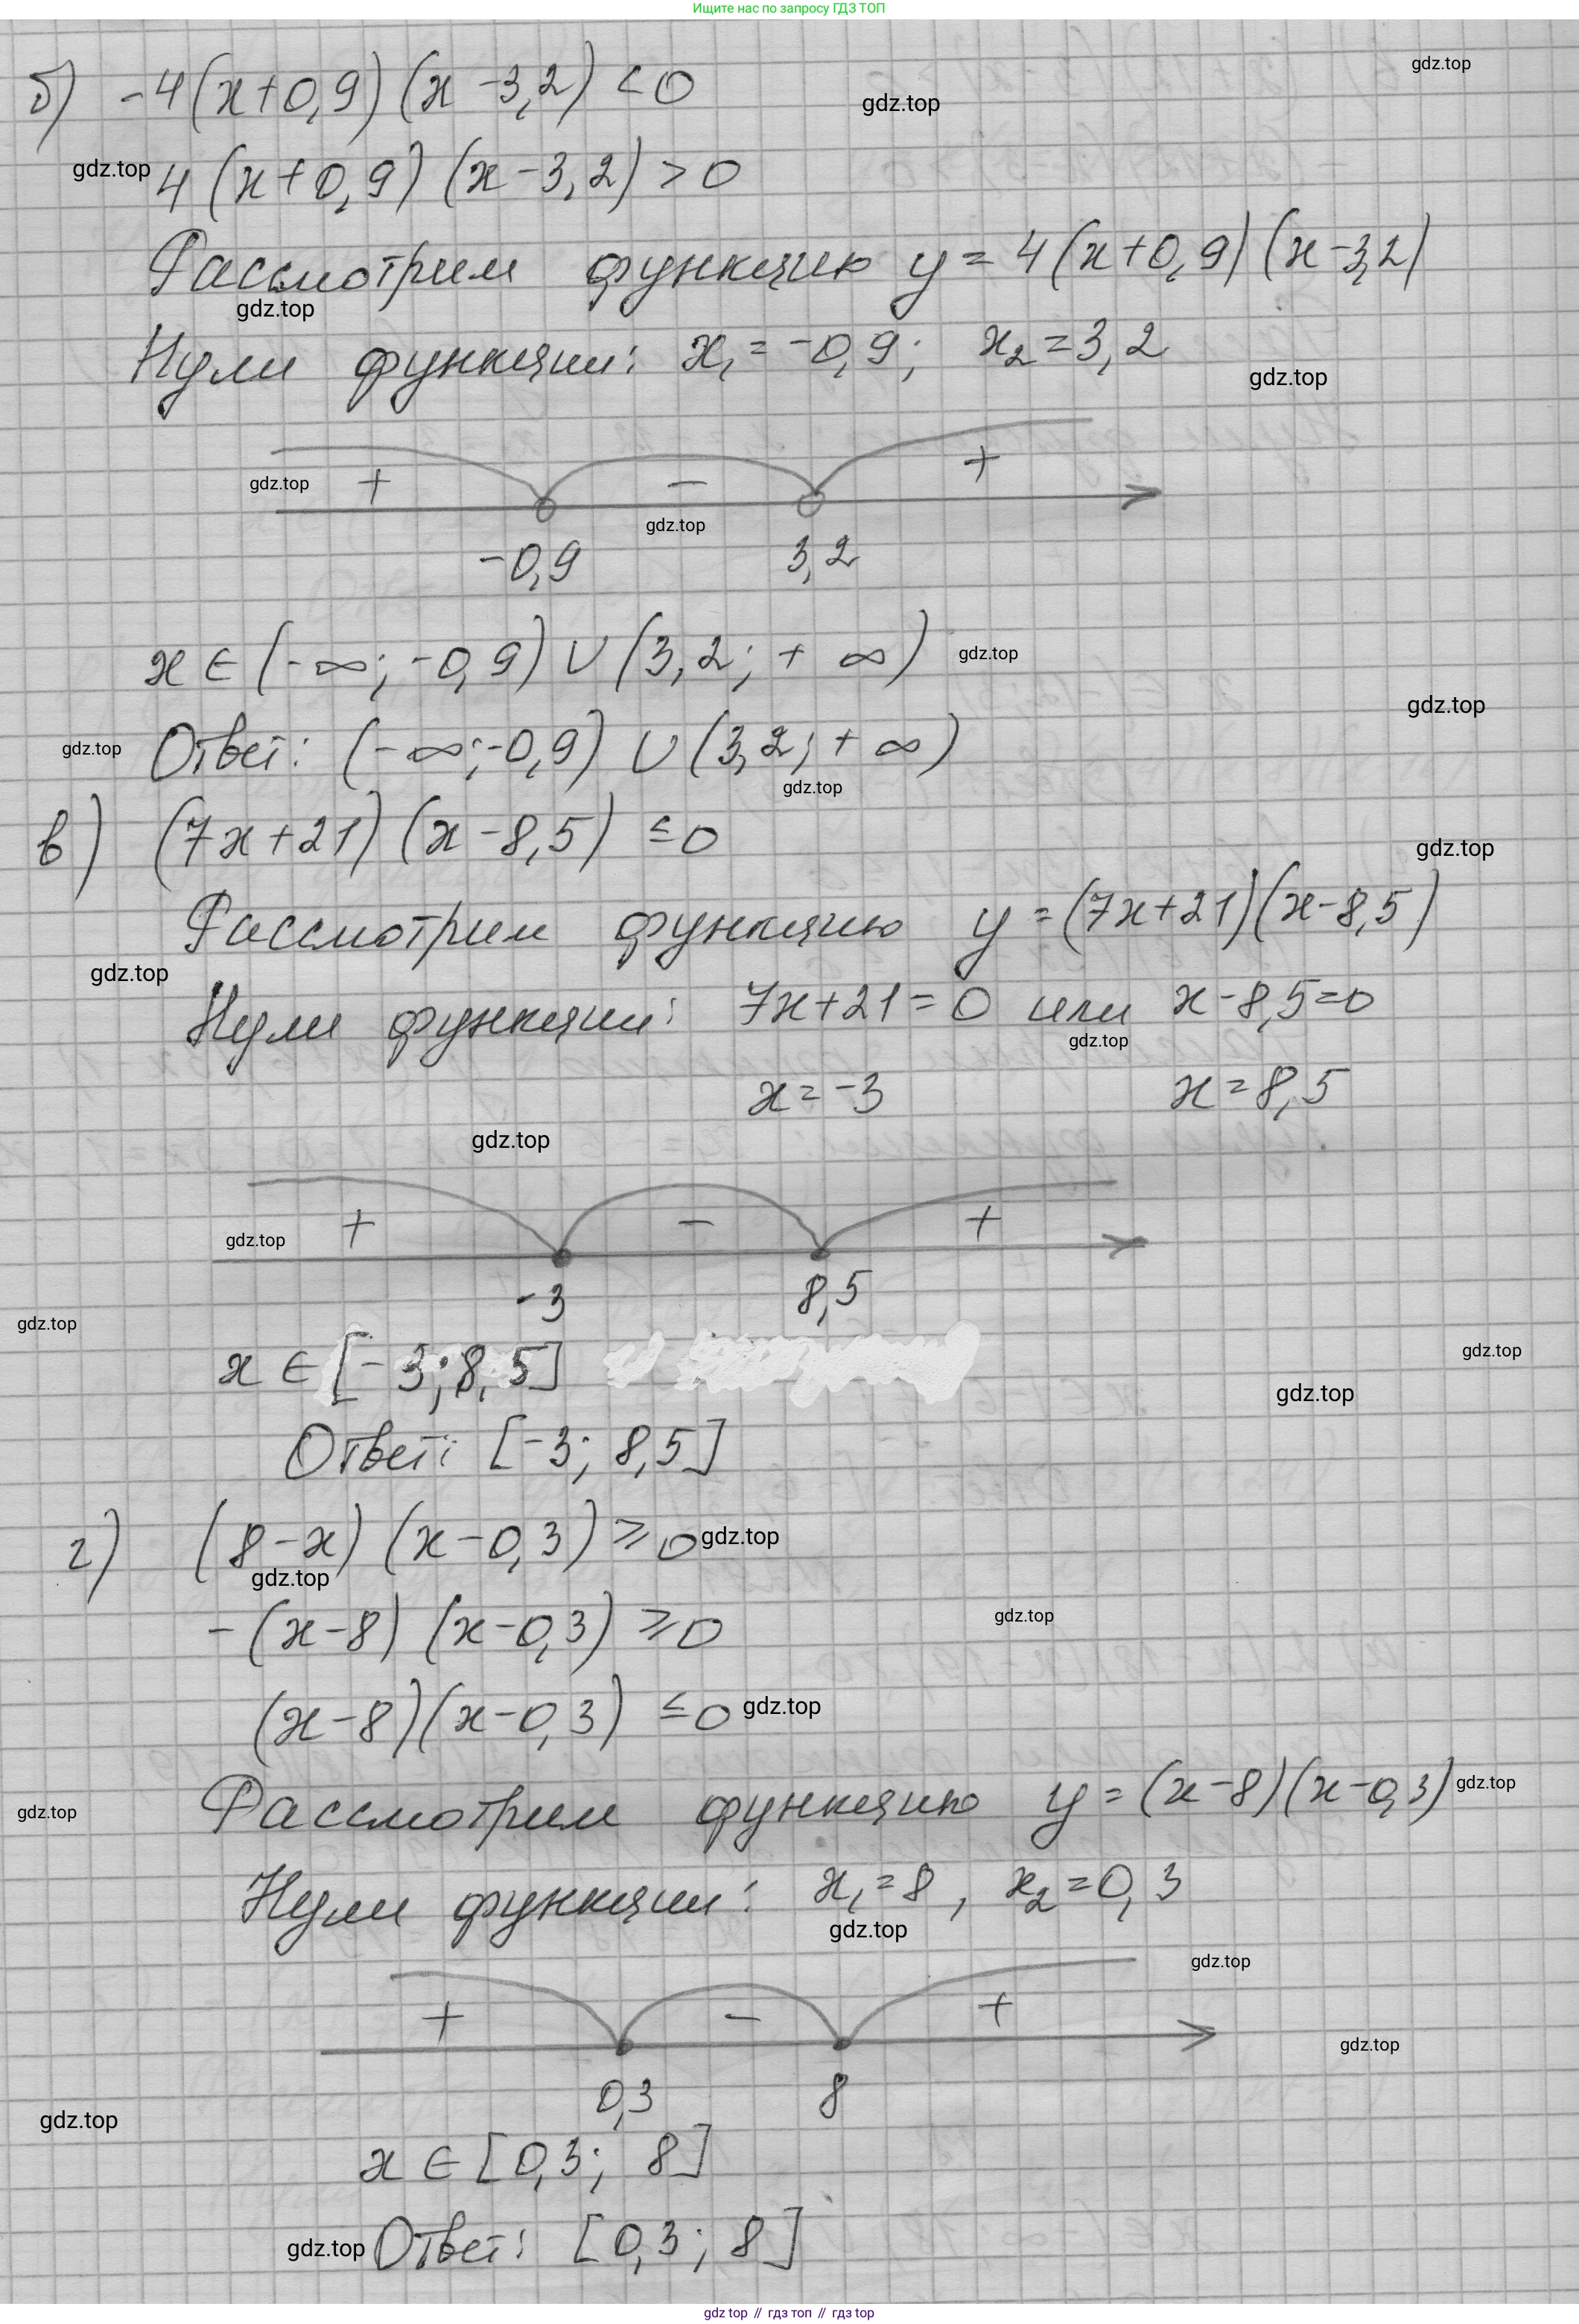 Ищите нас по запросу ГДЗ ТОП
gdz.top
б) -4(x+0,9)(x-3,2)<0
gdz.top
gdz.top
4(x+0,9)(x-3,2)>0
Рассмотрим функцию y=4(x+0,9)(x-3,2)
gdz.top
Нули функции: x₁=-0,9; x₂=3,2
gdz.top
+ - +
gdz.top
gdz.top
-0,9 3,2
x∈(-∞;-0,9)∪(3,2;+∞)
gdz.top
gdz.top
Ответ: (-∞;-0,9)∪(3,2;+∞)
gdz.top
gdz.top
в) (7x+21)(x-8,5)≤0
gdz.top
Рассмотрим функцию y=(7x+21)(x-8,5)
gdz.top
Нули функции: 7x+21=0 или x-8,5=0
gdz.top
x=-3 x=8,5
gdz.top
+ - +
gdz.top
-3 8,5
gdz.top
gdz.top
x∈[-3;8,5]
gdz.top
Ответ: [-3; 8,5]
г) (8-x)(x-0,3)≥0
gdz.top
gdz.top
-(x-8)(x-0,3)≥0
gdz.top
(x-8)(x-0,3)≤0
gdz.top
Рассмотрим функцию y=(x-8)(x-0,3)
gdz.top
gdz.top
Нули функции: x₁=8, x₂=0,3
gdz.top
gdz.top
+ - +
gdz.top
0,3 8
gdz.top
x∈[0,3; 8]
gdz.top
Ответ: [0,3; 8]
gdz top // гдз топ // gdz top